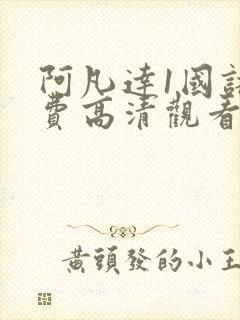 阿凡達1國
費高清觀看
黃頭發的小王